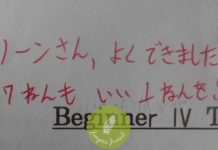 リーンさん、よくできました
7ねんも いい1ねんを
Beginner IV T